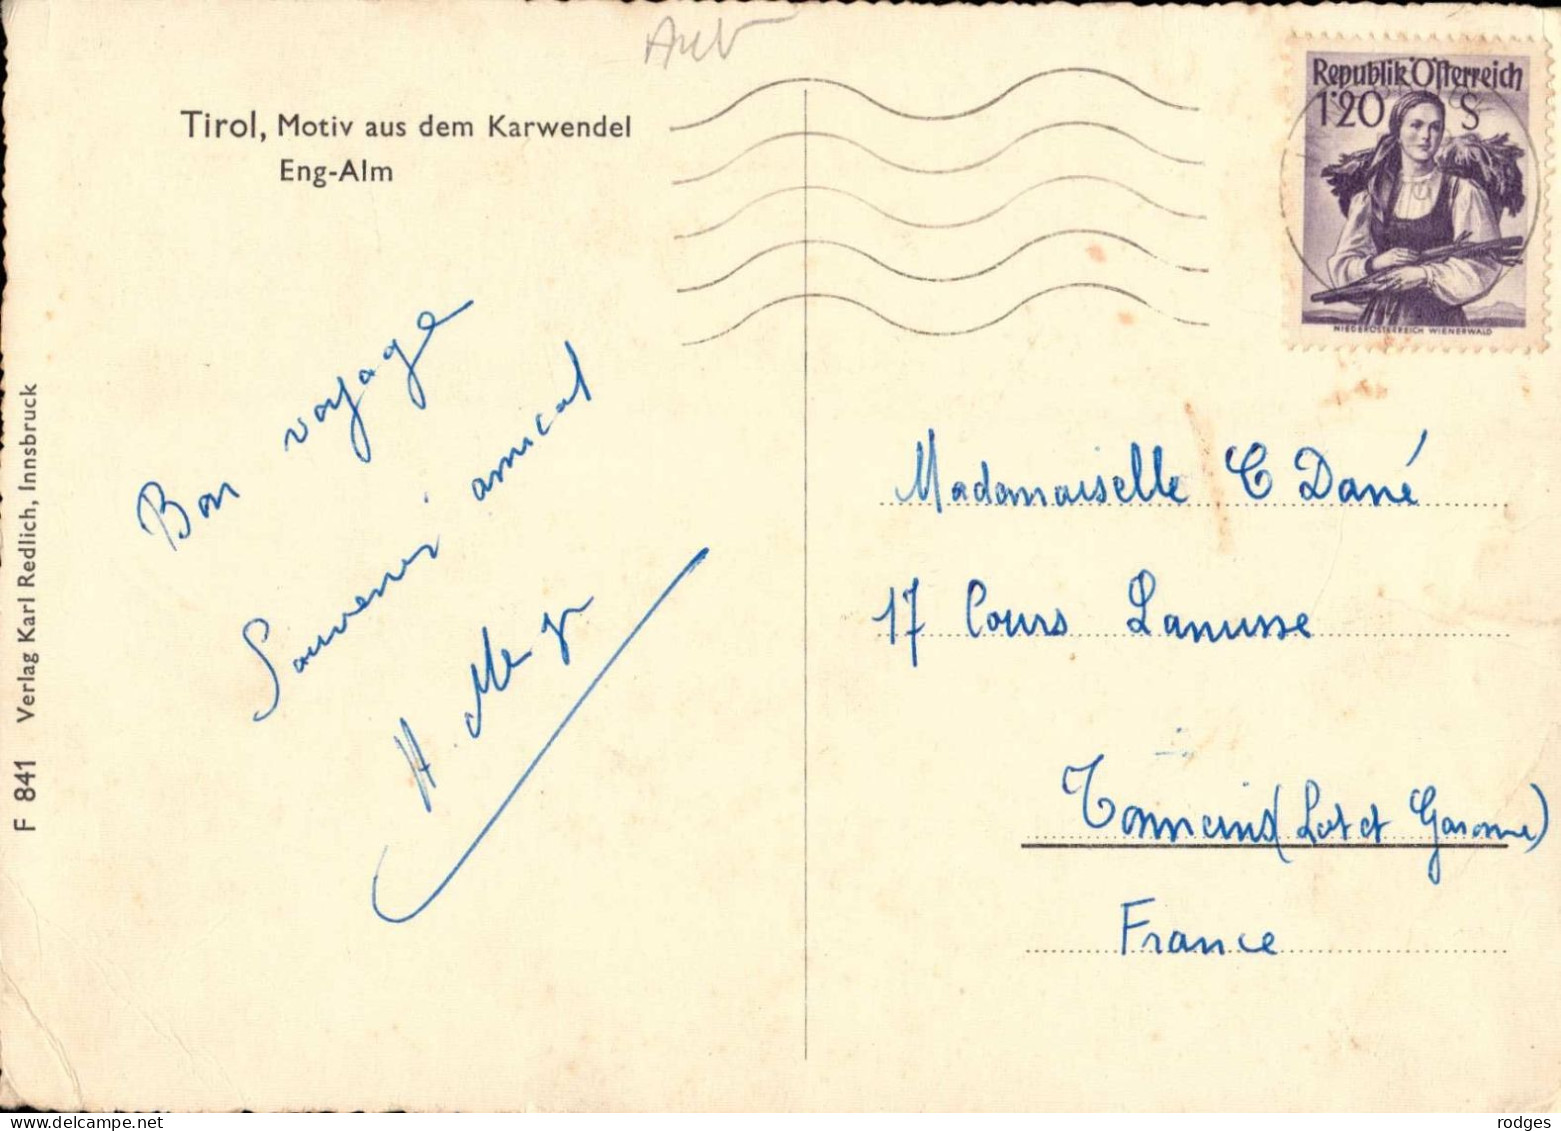 Tirol, Motiv aus dem Karwendel
Eng-Alm
Bon voyage
Souvenir amical
F 841 Verlag Karl Redlich, Innsbruck
Republik Österreich
1·20 S
NIEDERÖSTERREICH WIENERWALD
Mademoiselle C Dané
17 Cours Lanusse
Tonneins (Lot et Garonne)
France
rodges